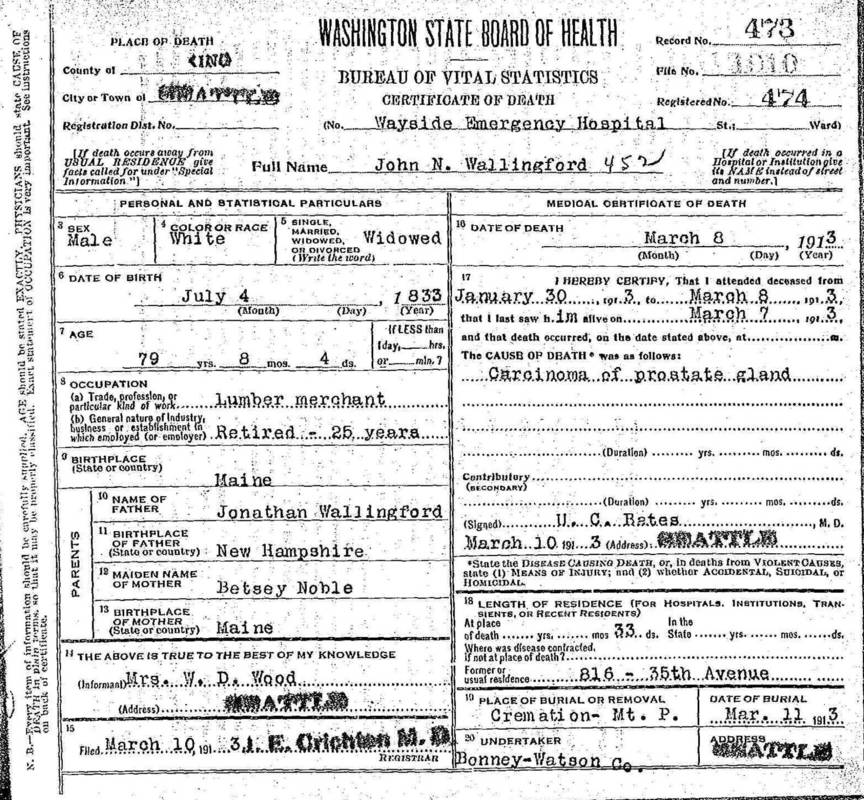 WASHINGTON STATE BOARD OF HEALTH
BUREAU OF VITAL STATISTICS
CERTIFICATE OF DEATH
PLACE OF DEATH
County of KING
City or Town of SEATTLE
Registration Dist. No.
Record No. 473
File No. 1010
Registered No. 474
(No. Wayside Emergency Hospital St.; Ward)
[If death occurs away from
USUAL RESIDENCE give
facts called for under "Special
Information."]
Full Name John N. Wallingford 452
[If death occurred in a
Hospital or Institution give
its NAME instead of street
and number.]
PERSONAL AND STATISTICAL PARTICULARS
3 SEX
Male
4 COLOR OR RACE
White
5 SINGLE,
MARRIED,
WIDOWED,
OR DIVORCED
(Write the word)
Widowed
6 DATE OF BIRTH
July 4, 1833
(Month) (Day) (Year)
7 AGE
79 yrs. 8 mos. 4 ds.
If LESS than
1 day, hrs.
or min.?
8 OCCUPATION
(a) Trade, profession, or
particular kind of work Lumber merchant
(b) General nature of Industry,
business or establishment in
which employed (or employer) Retired - 25 years
9 BIRTHPLACE
(State or country)
Maine
PARENTS
10 NAME OF
FATHER Jonathan Wallingford
11 BIRTHPLACE
OF FATHER
(State or country) New Hampshire
12 MAIDEN NAME
OF MOTHER Betsey Noble
13 BIRTHPLACE
OF MOTHER
(State or country) Maine
14 THE ABOVE IS TRUE TO THE BEST OF MY KNOWLEDGE
(Informant) Mrs. W. D. Wood
(Address) SEATTLE
15
Filed March 10, 1913 J. E. Crichton M. D.
REGISTRAR
MEDICAL CERTIFICATE OF DEATH
16 DATE OF DEATH
March 8, 1913
(Month) (Day) (Year)
17 I HEREBY CERTIFY, That I attended deceased from
January 30, 1913, to March 8, 1913,
that I last saw him alive on March 7, 1913,
and that death occurred, on the date stated above, at m.
The CAUSE OF DEATH* was as follows:
Carcinoma of prostate gland
(Duration) yrs. mos. ds.
Contributory
(SECONDARY)
(Duration) yrs. mos. ds.
(Signed) U. C. Bates, M. D.
March 10 1913 (Address) SEATTLE
*State the DISEASE CAUSING DEATH, or, in deaths from VIOLENT CAUSES,
state (1) MEANS OF INJURY; and (2) whether ACCIDENTAL, SUICIDAL, OR
HOMICIDAL.
18 LENGTH OF RESIDENCE (FOR HOSPITALS, INSTITUTIONS, TRAN-
SIENTS, OR RECENT RESIDENTS)
At place
of death yrs. mos 33 ds.
In the
State yrs. mos. ds.
Where was disease contracted,
if not at place of death?
Former or
usual residence 816 - 35th Avenue
19 PLACE OF BURIAL OR REMOVAL
Cremation- Mt. P.
DATE OF BURIAL
Mar. 11 1913
20 UNDERTAKER
Bonney-Watson Co.
ADDRESS
SEATTLE
N. B.—Every item of information should be carefully supplied. AGE should be stated EXACTLY. PHYSICIANS should state CAUSE OF
DEATH in plain terms, so that it may be properly classified. Exact statement of OCCUPATION is very important. See instructions
on back of certificate.